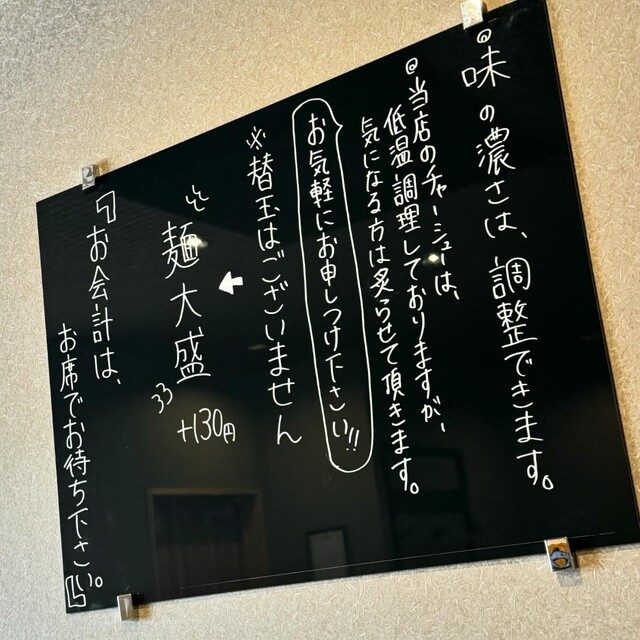 ◎味の濃さは、調整できます。
◎当店のチャーシューは、
低温調理しておりますが、
気になる方は炙らせて頂きます。
お気軽にお申しつけ下さい!!
※替玉はございません
麺大盛
+130円
『お会計は、
お席でお待ち下さい。』